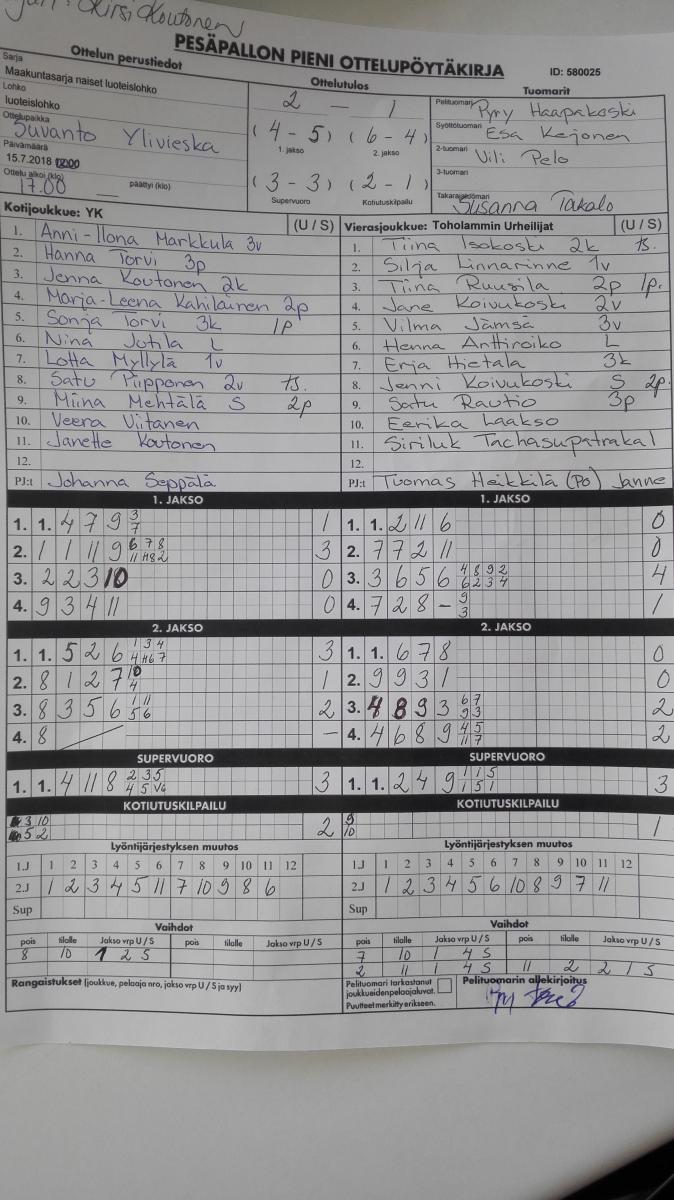 Kirsi Koutonen
PESÄPALLON PIENI OTTELUPÖYTÄKIRJA
ID: 580025
Ottelun perustiedot
Sarja
Maakuntasarja naiset luoteislohko
Lohko
luoteislohko
Ottelupaikka
Suvanto Ylivieska
Päivämäärä
15.7.2018
Ottelu alkoi (klo) päättyi (klo)
17.00
Ottelutulos
2 - 1
(4 - 5) (6 - 4)
1. jakso 2. jakso
(3 - 3) (2 - 1)
Supervuoro Kotiutuskilpailu
Tuomarit
Pelituomari Pyry Haapakoski
Syöttötuomari Esa Keijonen
2-tuomari Vili Pelo
3-tuomari
Takarajatuomari Susanna Takalo
Kotijoukkue: YK (U / S)
1. Anni-Ilona Markkula 3v
2. Hanna Torvi 3p
3. Jenna Koutonen 2k
4. Marja-Leena Kahiläinen 2p
5. Sonja Torvi 3k 1p
6. Nina Jutila L
7. Lotta Myllylä 1v
8. Satu Piipponen 2v 1s.
9. Miina Mehtälä S 2p
10. Veera Viitanen
11. Janette Koutonen
12.
PJ:t Johanna Seppälä
Vierasjoukkue: Toholammin Urheilijat (U / S)
1. Tiina Isokoski 2k 1s.
2. Silja Linnarinne 1v
3. Tiina Ruusila 2p 1p.
4. Jane Koivukoski 2v
5. Vilma Jämsä 3v
6. Henna Anttiroiko L
7. Erja Hietala 3k
8. Jenni Koivukoski S 2p.
9. Satu Rautio 3p
10. Eerika Laakso
11. Siriluk Tachasupatrakal
12.
PJ:t Tuomas Heikkilä (Po) Janne
1. JAKSO
1. 1. 4 7 9 3 7 1
2. 1 1 11 9 6 7 8 11 11 8 2 3
3. 2 2 3 10 0
4. 9 3 4 11 0
2. JAKSO
1. 1. 5 2 6 1 3 4 4 11 6 7 3
2. 8 1 2 7 10 4 1
3. 8 3 5 6 1 11 5 6 2
4. 8 -
SUPERVUORO
1. 1. 4 11 8 2 3 5 4 5 3
KOTIUTUSKILPAILU
3 10
5 2 2
1. JAKSO
1. 1. 2 11 6 0
2. 7 7 2 11 0
3. 3 6 5 6 4 8 9 2 6 2 3 4 4
4. 7 2 8 - 9 3 1
2. JAKSO
1. 1. 6 7 8 0
2. 9 9 3 1 0
3. 4 8 9 3 6 7 9 3 2
4. 4 6 8 9 4 5 11 7 2
SUPERVUORO
1. 1. 2 4 9 1 1 5 1 5 1 3
KOTIUTUSKILPAILU
9
10 1
Lyöntijärjestyksen muutos
1.J 1 2 3 4 5 6 7 8 9 10 11 12
2.J 1 2 3 4 5 11 7 10 9 8 6
Sup
Vaihdot
pois tilalle Jakso vrp U / S pois tilalle Jakso vrp U / S
8 10 1 2 S
Rangaistukset (joukkue, pelaaja nro, jakso vrp U / S ja syy)
Lyöntijärjestyksen muutos
1.J 1 2 3 4 5 6 7 8 9 10 11 12
2.J 1 2 3 4 5 6 10 8 9 7 11
Sup
Vaihdot
pois tilalle Jakso vrp U / S pois tilalle Jakso vrp U / S
7 10 1 4 S
2 11 1 4 S 11 2 2 1 S
Pelituomari tarkastanut
joukkueidenpelaajaluvat.
Puutteet merkitty erikseen.
Pelituomarin allekirjoitus